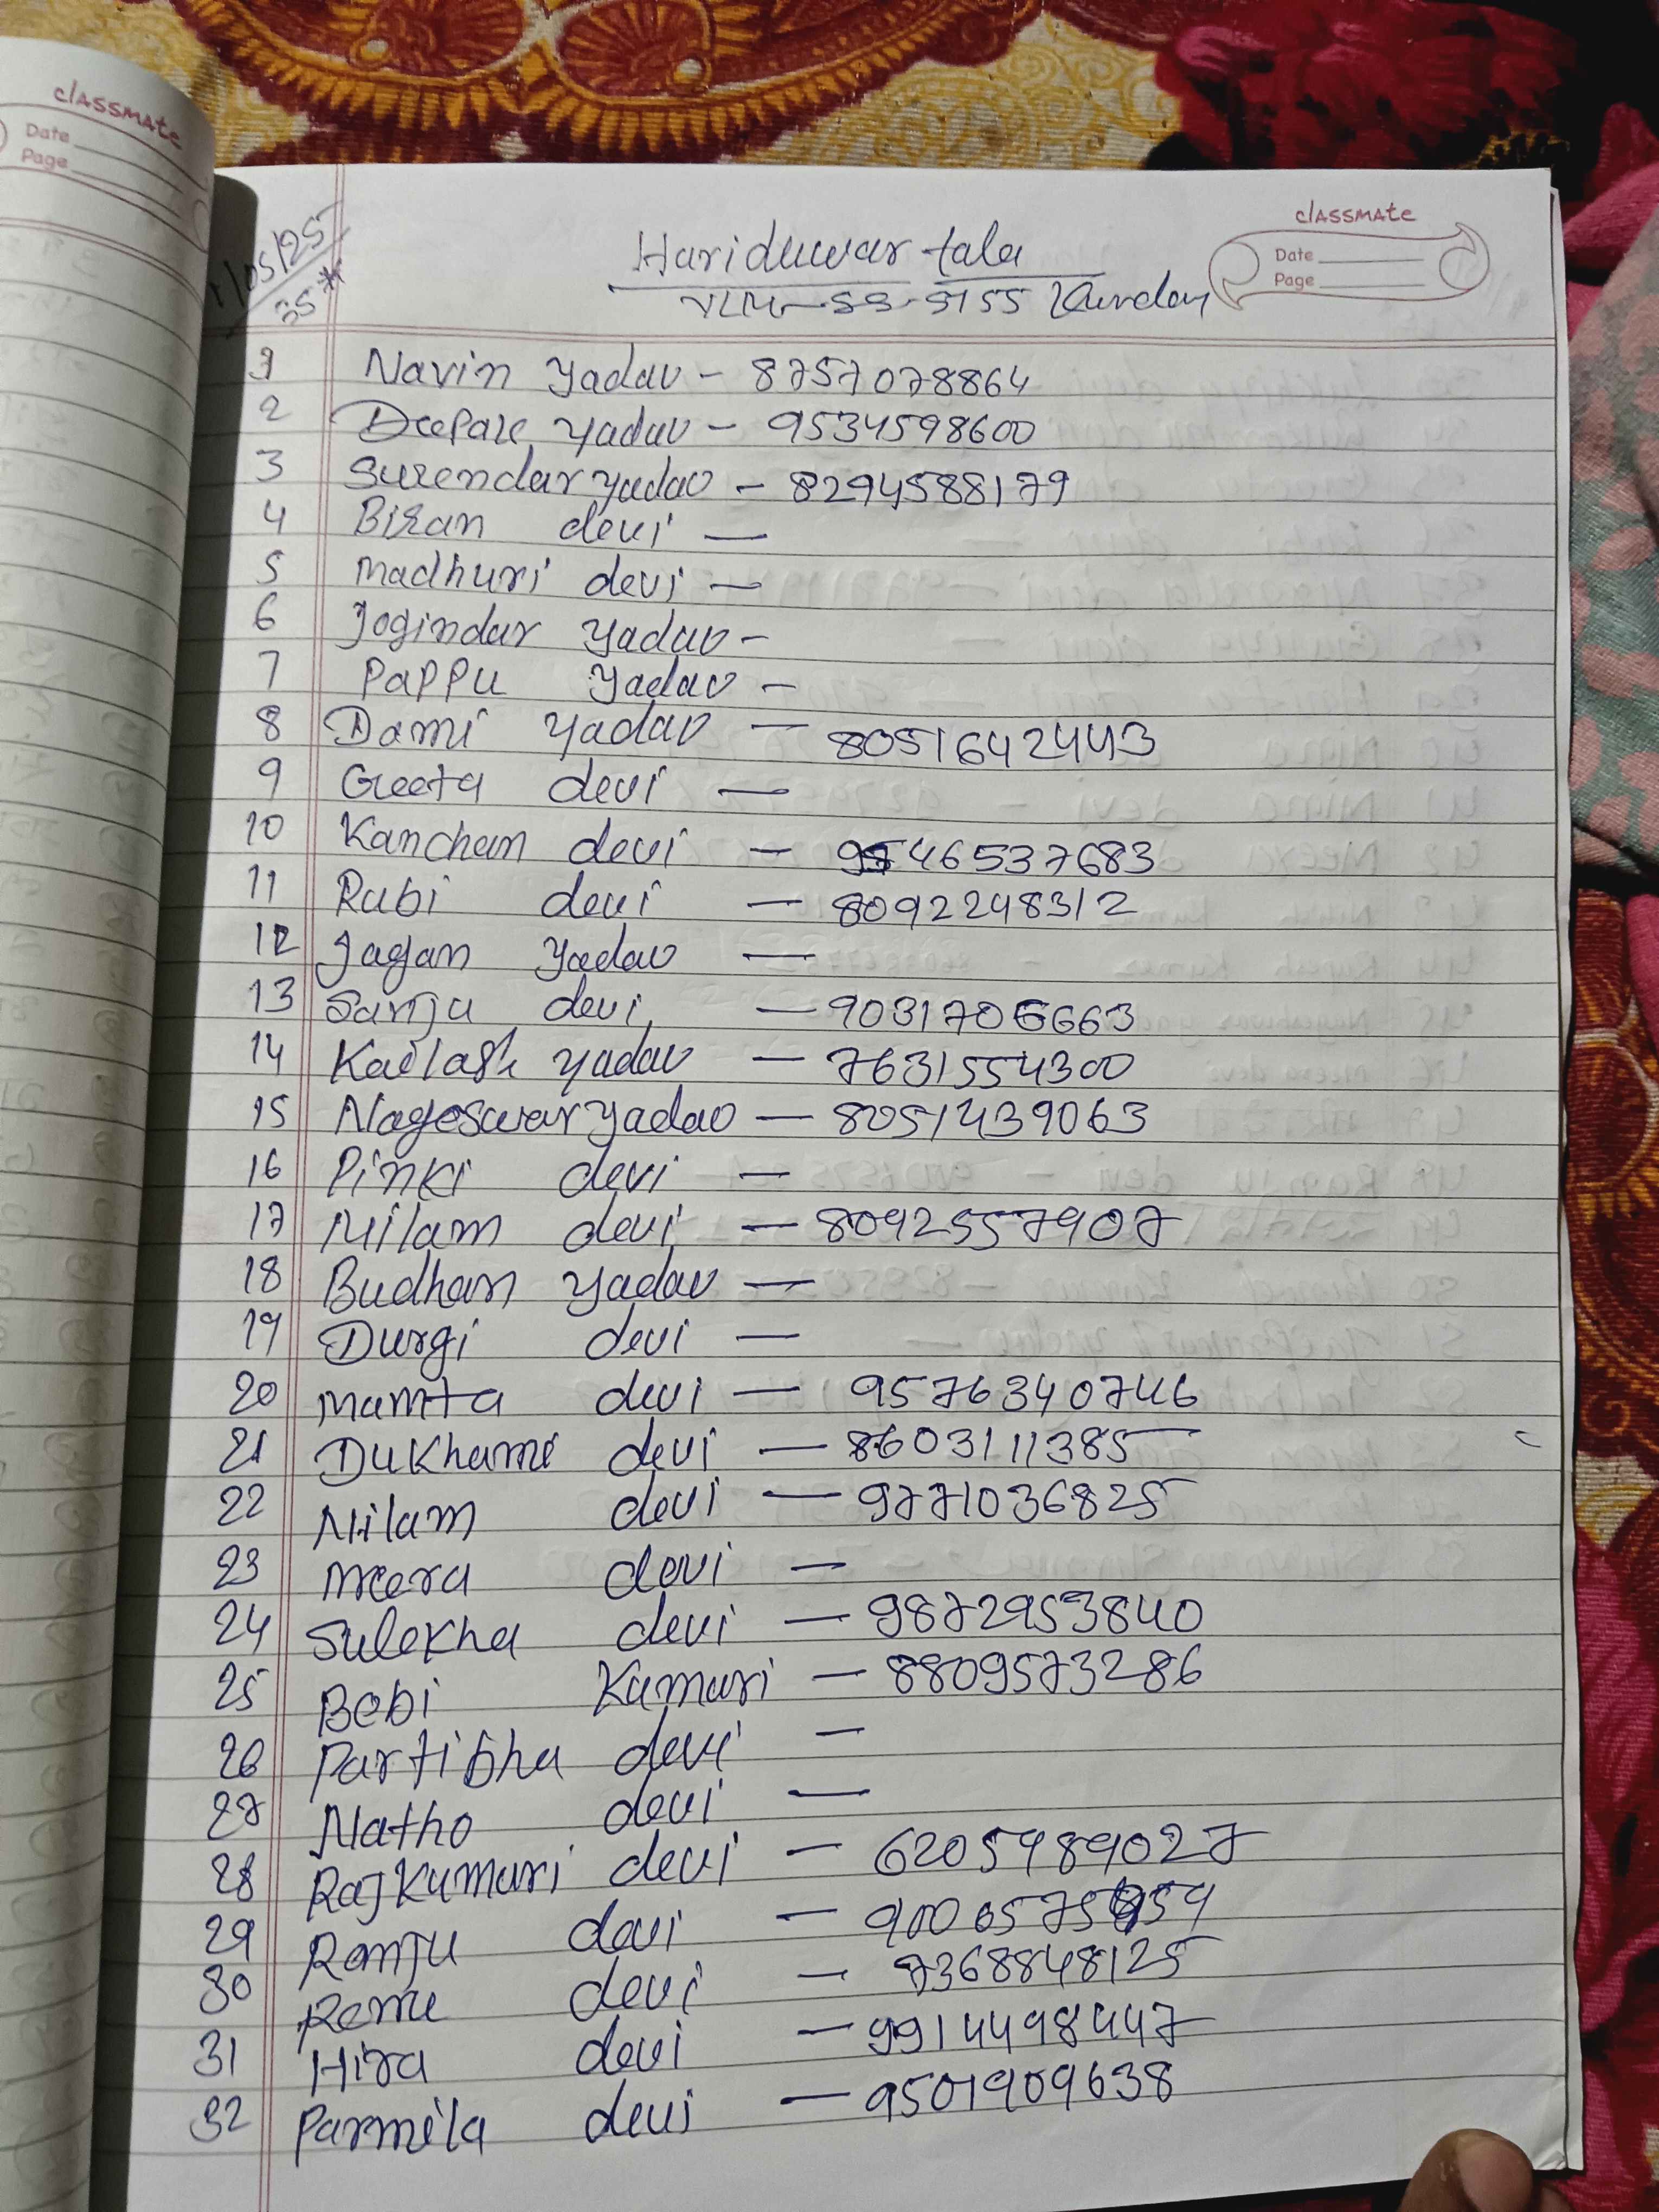 classmate
Date
Page
classmate
Date
Page
/05/25
35*
Hariduwar tala
5155
1 Navin Yadav - 8757078864
2 Deepak Yadav - 9534598600
3 Surendar yadav - 8294588179
4 devi -
5 Madhuri devi -
6 Jogindar Yadav -
7 Pappu Yadav -
8 Dami Yadav - 8051642443
9 Geeta devi -
10 Kanchan devi - 9546537683
11 Rubi devi - 8092248312
12 Jagan Yadav -
13 Sanju devi - 9031706663
14 Kailash yadav - 7631554300
15 Nageswar yadav - 8051439063
16 Pinki devi -
17 Nilam devi - 8092557907
18 Budhan Yadav -
19 Durgi devi -
20 Mamta devi - 9576340746
21 Dukhami devi - 8603111385
22 Nilam devi - 9771036825
23 Meera devi -
24 Sulekha devi - 9872953840
25 Bebi Kumari - 8809573286
26 Partibha devi -
27 Natho devi -
28 Rajkumari devi - 6205989027
29 Ranju devi -
30 Renu devi - 7368848125
31 Hira devi - 9914498447
32 Parmila devi - 9501909638